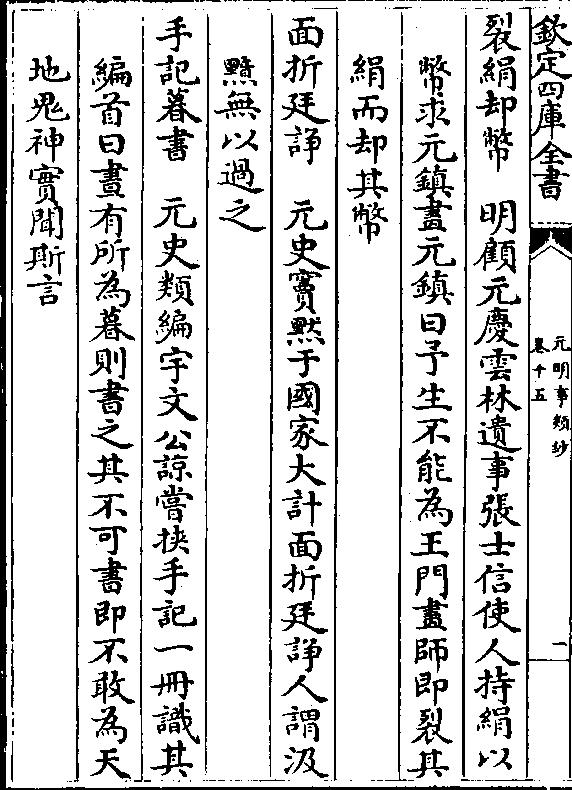 欽定四庫全書
元明事類鈔
卷十五
一
裂絹却幣　明顧元慶雲林遺事張士信使人持絹以
幣求元鎮畫元鎮曰予生不能為王門畫師即裂其
絹而却其幣
面折廷諍　元史竇默于國家大計面折廷諍人謂汲
黯無以過之
手記暮書　元史類編宇文公諒嘗挾手記一冊識其
編首曰晝有所為暮則書之其不可書即不敢為天
地鬼神實聞斯言